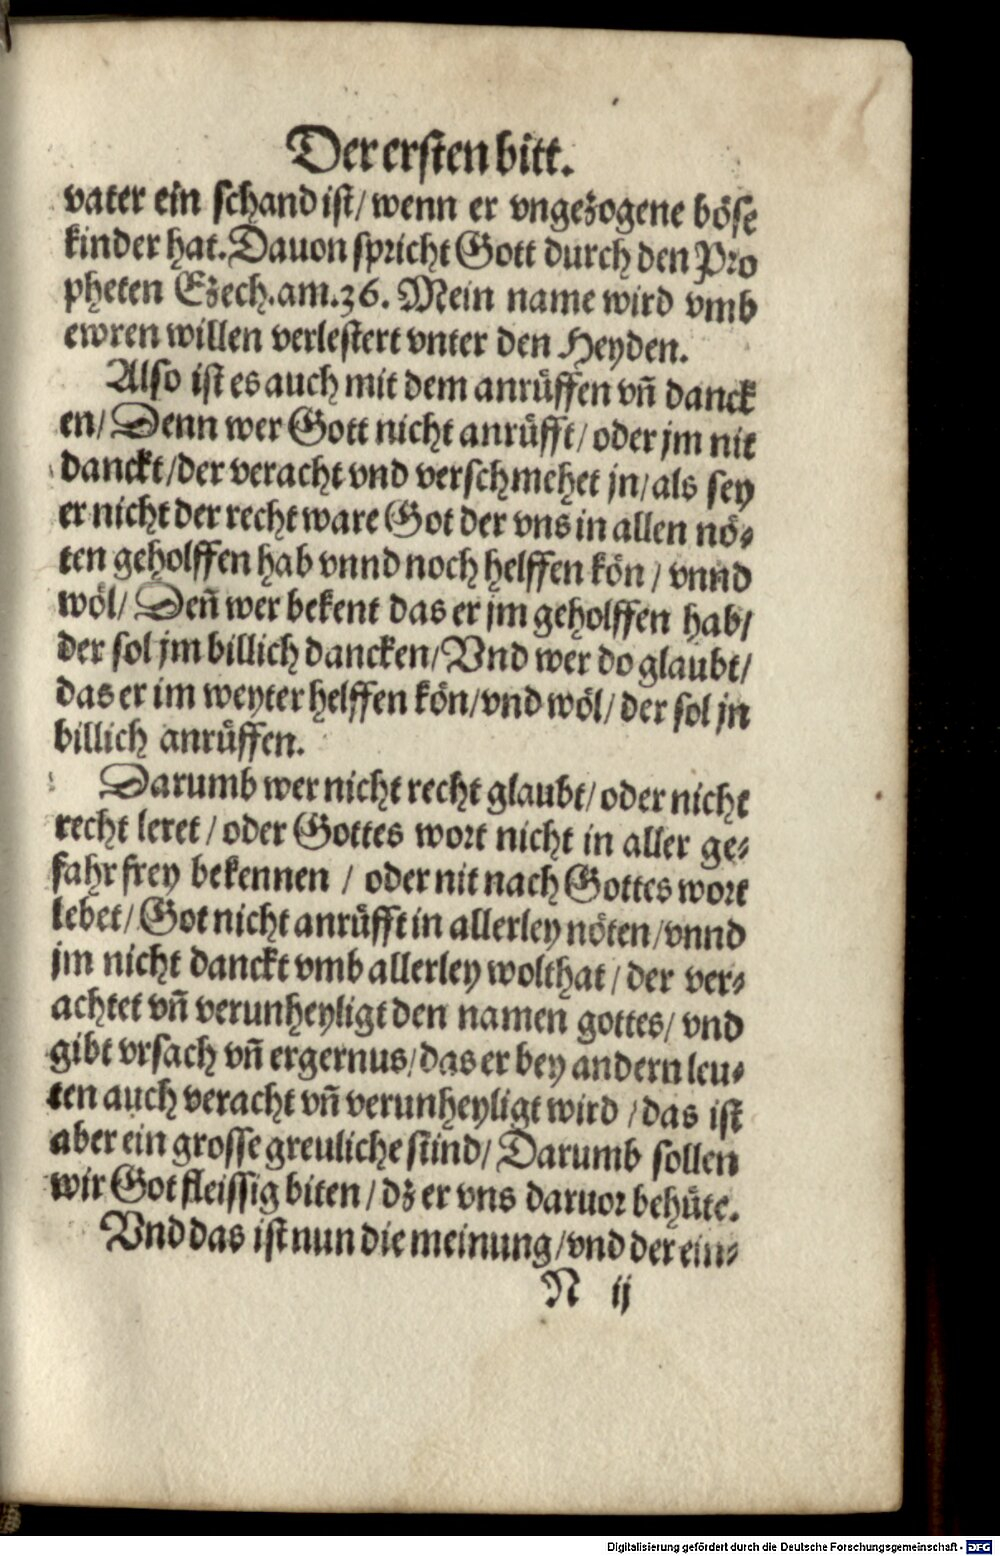 Der ersten bitt.
vater ein schand ist/ wenn er vngezogene böse
kinder hat. Dauon spricht Gott durch den Pro
pheten Ezech. am. 36. Mein name wird vmb
ewren willen verlestert vnter den Heyden.
Also ist es auch mit dem anrüffen vñ danck
en/ Denn wer Gott nicht anrüfft/ oder jm nit
danckt/ der veracht vnd verschmehet jn/ als sey
er nicht der recht ware Got der vns in allen nö-
ten geholffen hab vnnd noch helffen kön / vnnd
wöl/ Deñ wer bekent das er jm geholffen hab/
der sol jm billich dancken/ Vnd wer do glaubt/
das er im weyter helffen kön/ vnd wöl/ der sol jn
billich anrüffen.
Darumb wer nicht recht glaubt/ oder nicht
recht leret / oder Gottes wort nicht in aller ge-
fahr frey bekennen / oder nit nach Gottes wort
lebet/ Got nicht anrüfft in allerley nöten/ vnnd
jm nicht danckt vmb allerley wolthat / der ver-
achtet vñ verunheyligt den namen gottes/ vnd
gibt vrsach vñ ergernus/ das er bey andern leu-
ten auch veracht vñ verunheyligt wird / das ist
aber ein grosse greuliche sünd/ Darumb sollen
wir Got fleissig biten / dz er vns daruor behüte.
Vnd das ist nun die meinung/ vnd der ein-
N ij
Digitalisierung gefördert durch die Deutsche Forschungsgemeinschaft - DFG